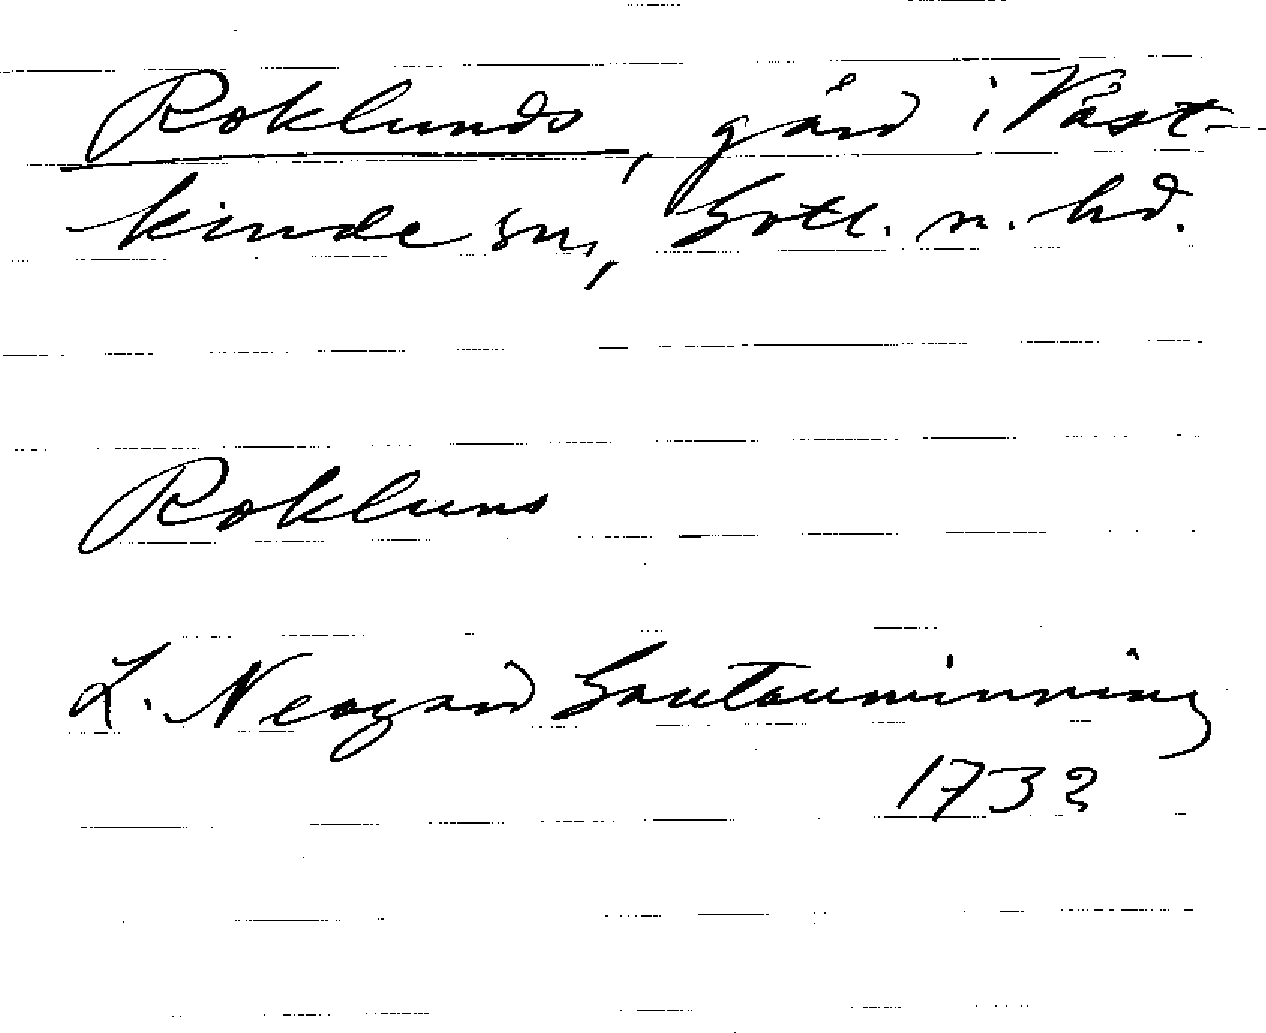 Roklunds, gård i Väst-
kinde sn, Gotl. n. hd.
Rokluns
L. Neogard Gautauminning
1732